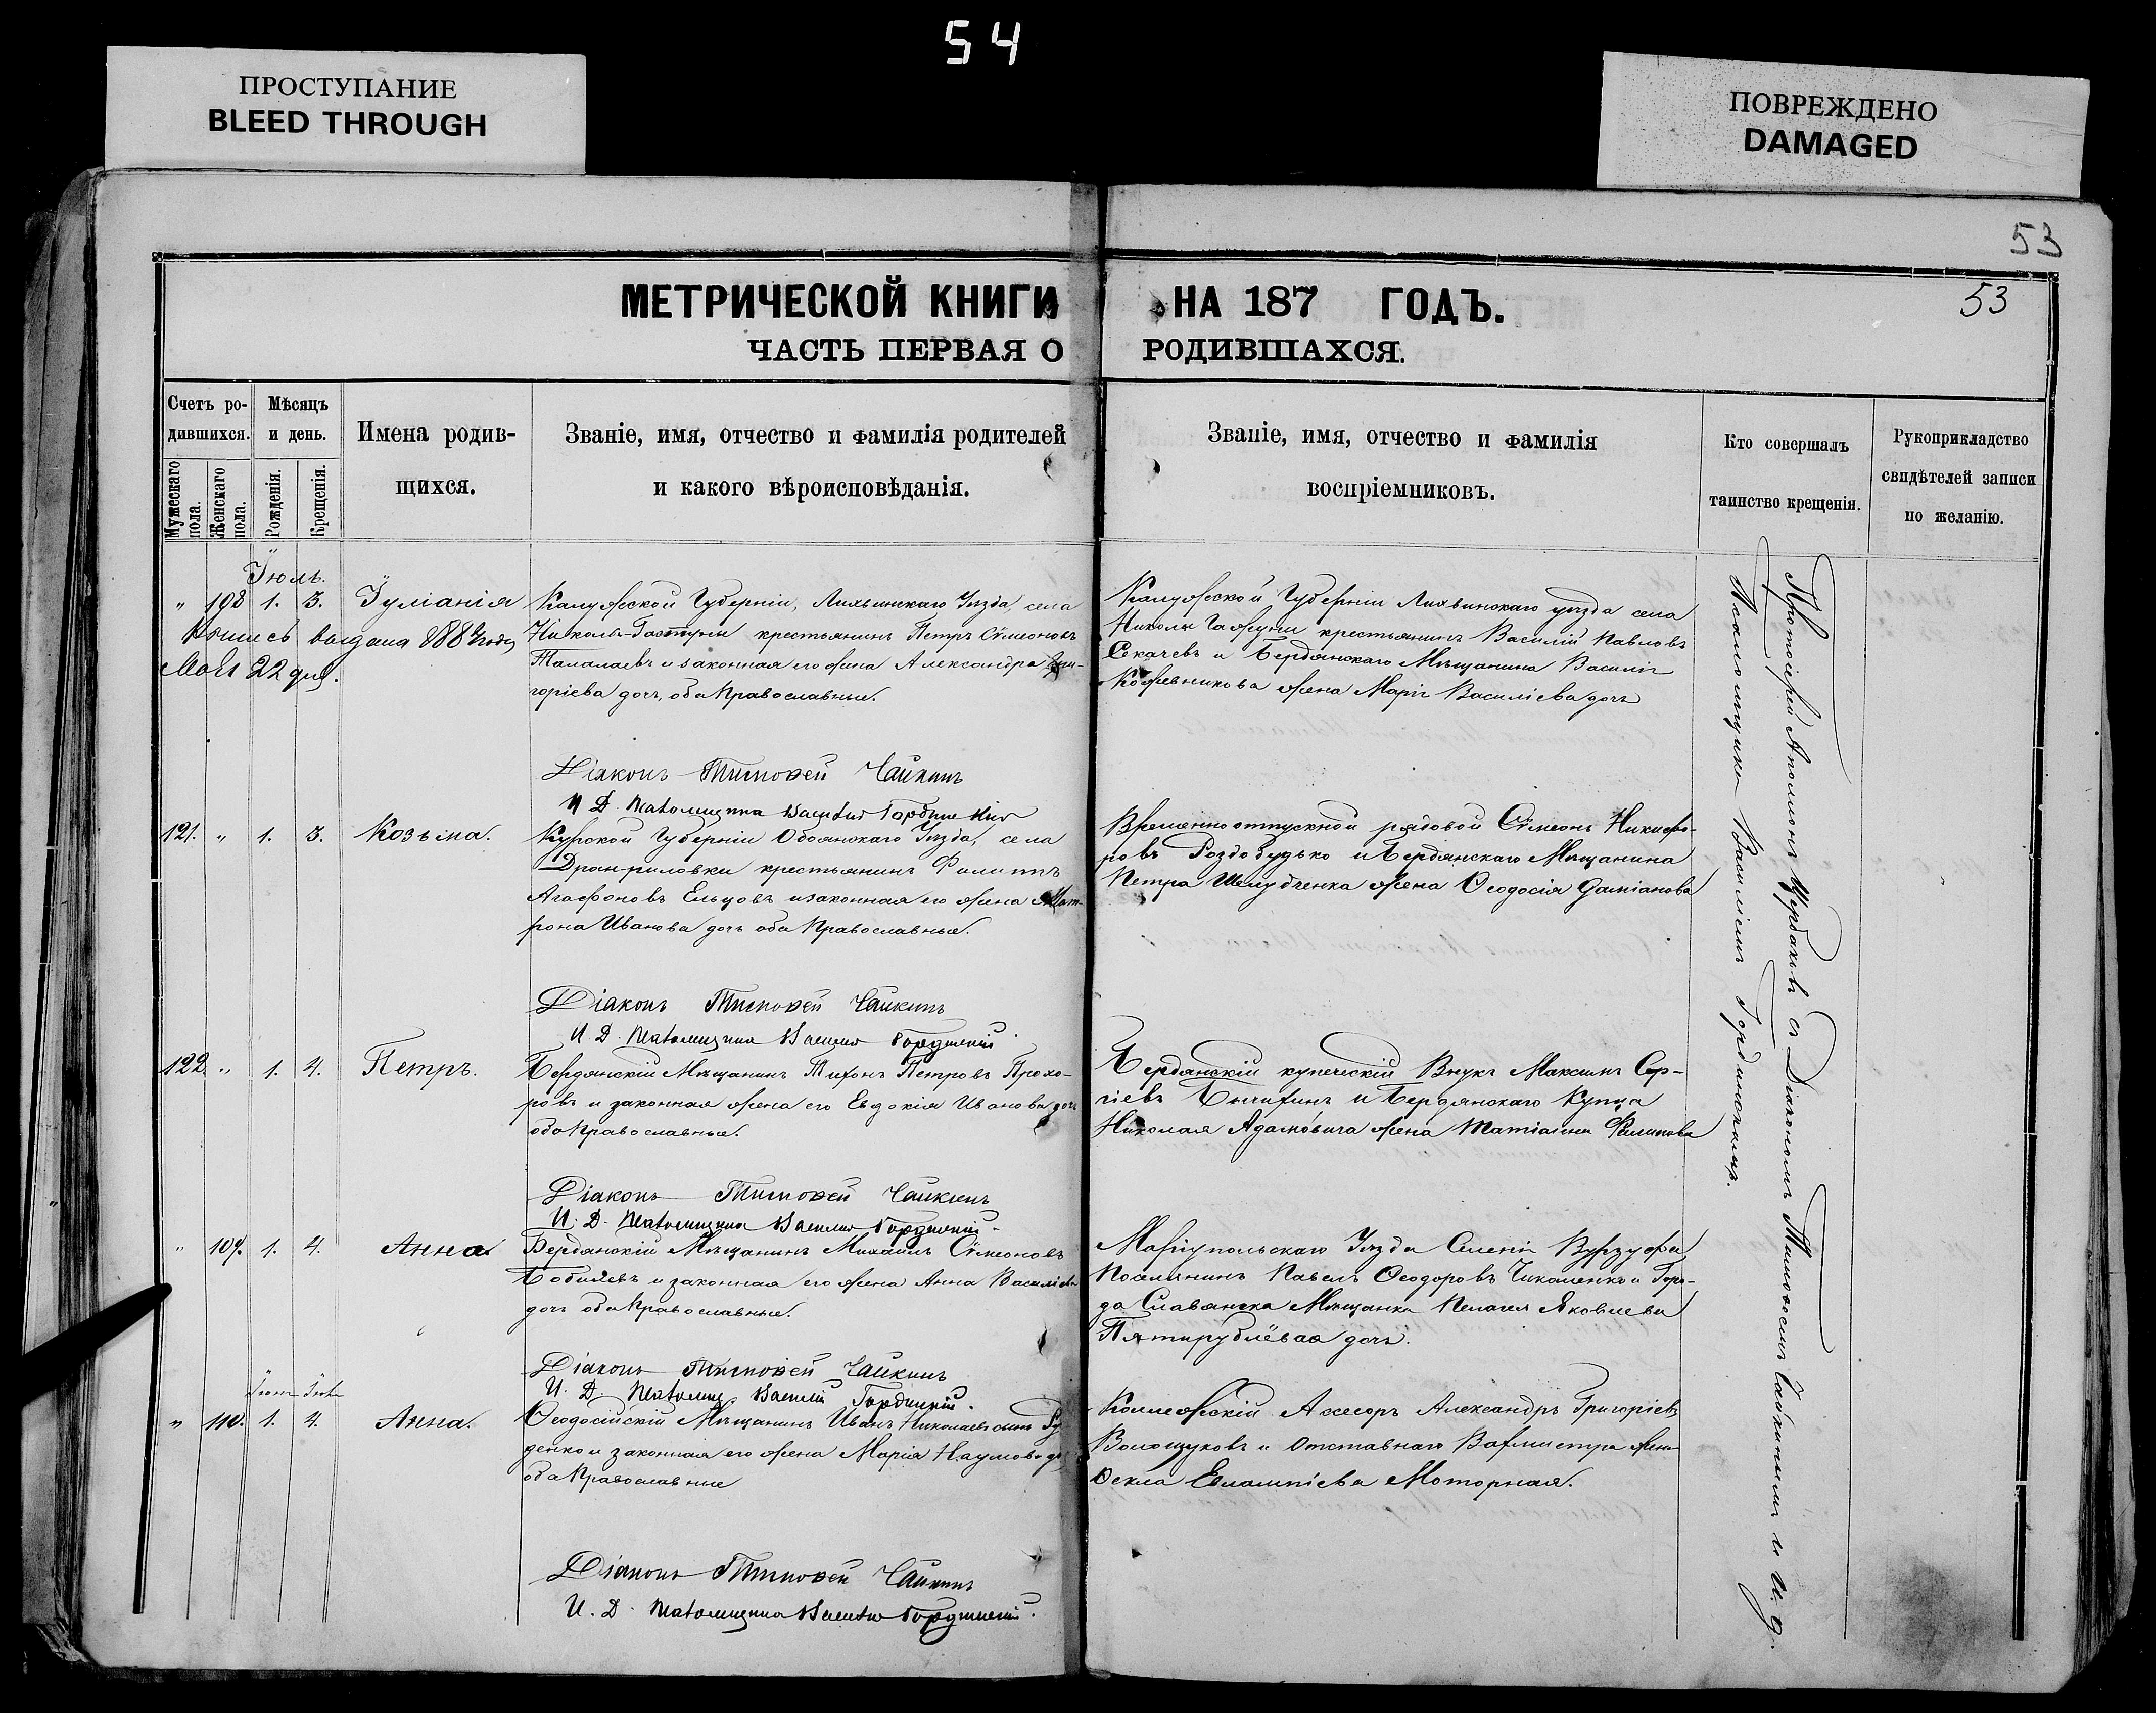 54
ПРОСТУПАНИЕ
BLEED THROUGH
ПОВРЕЖДЕНО
DAMAGED
53
МЕТРИЧЕСКОЙ КНИГИ НА 187 ГОДЪ.
53
ЧАСТЬ ПЕРВАЯ О РОДИВШАХСЯ.
Счетъ ро-
дившихся.
Мужескаго пола.
Женскаго пола.
Мѣсяцъ
и день.
Рожденія.
Крещенія.
Имена родив-
щихся.
Званіе, имя, отчество и фамилія родителей
и какого вѣроисповѣданія.
Званіе, имя, отчество и фамилія
воспріемниковъ.
Кто совершалъ
таинство крещенія.
Рукоприкладство
свидѣтелей записи
по желанію.
Іюль.
" 108 1. 3. Іуліанія
выдана
Мая 22 дня.
Калужской Губерніи, Лихвинскаго Уѣзда, села
крестьянинъ Петръ Сѵмеоновъ
Талалаевъ и законная его жена Александра Гри-
горіева дочь, оба Православные.
Калужской Губерніи Лихвинскаго уѣзда села
Николы крестьянинъ Василій Павловъ
Секачевъ и Бердянскаго Мѣщанина Василія
Кожевникова жена Марія Василіева дочь
Діаконъ Тимоѳей Чайкинъ
И. Д. Псаломщика Василій
121. " 1. 3. Козьма.
Курской Губерніи Обоянскаго Уѣзда, села
крестьянинъ Филиппъ
Агафоновъ Ельцовъ и законная его жена Мат-
рона Иванова дочь оба Православные.
Временно отпускной рядовой Сѵмеонъ Никифо-
ровъ Роздобудько и Бердянскаго Мѣщанина
Петра жена Ѳеодосія Даміанова
Діаконъ Тимоѳей Чайкинъ
И. Д. Псаломщика Василій
122. " 1. 4. Петръ.
Бердянскій Мѣщанинъ Тихонъ Петровъ Прохо-
ровъ и законная жена его Евдокія Иванова дочь
оба Православные.
Бердянскій купеческій Внукъ Максимъ Сер-
гіевъ и Бердянскаго Купца
Николая Адамовича жена Татіана Филипова
Діаконъ Тимоѳей Чайкинъ
И. Д. Псаломщика Василій
" 109. 1. 4. Анна.
Бердянскій Мѣщанинъ Михаилъ Сѵмеоновъ
и законная его жена Анна Василіева
дочь оба Православные.
Маріупольскаго Уѣзда Селенія
Поселянинъ Павелъ Ѳеодоровъ и Горо-
да Славянска Мѣщанка Пелагея Яковлева
Пятирублёвая дочь.
Діаконъ Тимоѳей Чайкинъ
И. Д. Псаломщ. Василій
" 110. 1. 4. Анна.
Ѳеодосійскій Мѣщанинъ Иванъ Николаевъ сынъ
и законная его жена Марія Наумова
оба Православные
Коллежскій Асесоръ Александръ Григоріевъ
и Отставнаго Вахмистра жена
Ѳекла Евлампіева Моторная.
Діаконъ Тимоѳей Чайкинъ
И. Д. Псаломщика Василій
Протоіерей Аполлонъ Щербаковъ съ Діакономъ Тимоѳеемъ Чайкинымъ и И. д.
Псаломщика Василіемъ